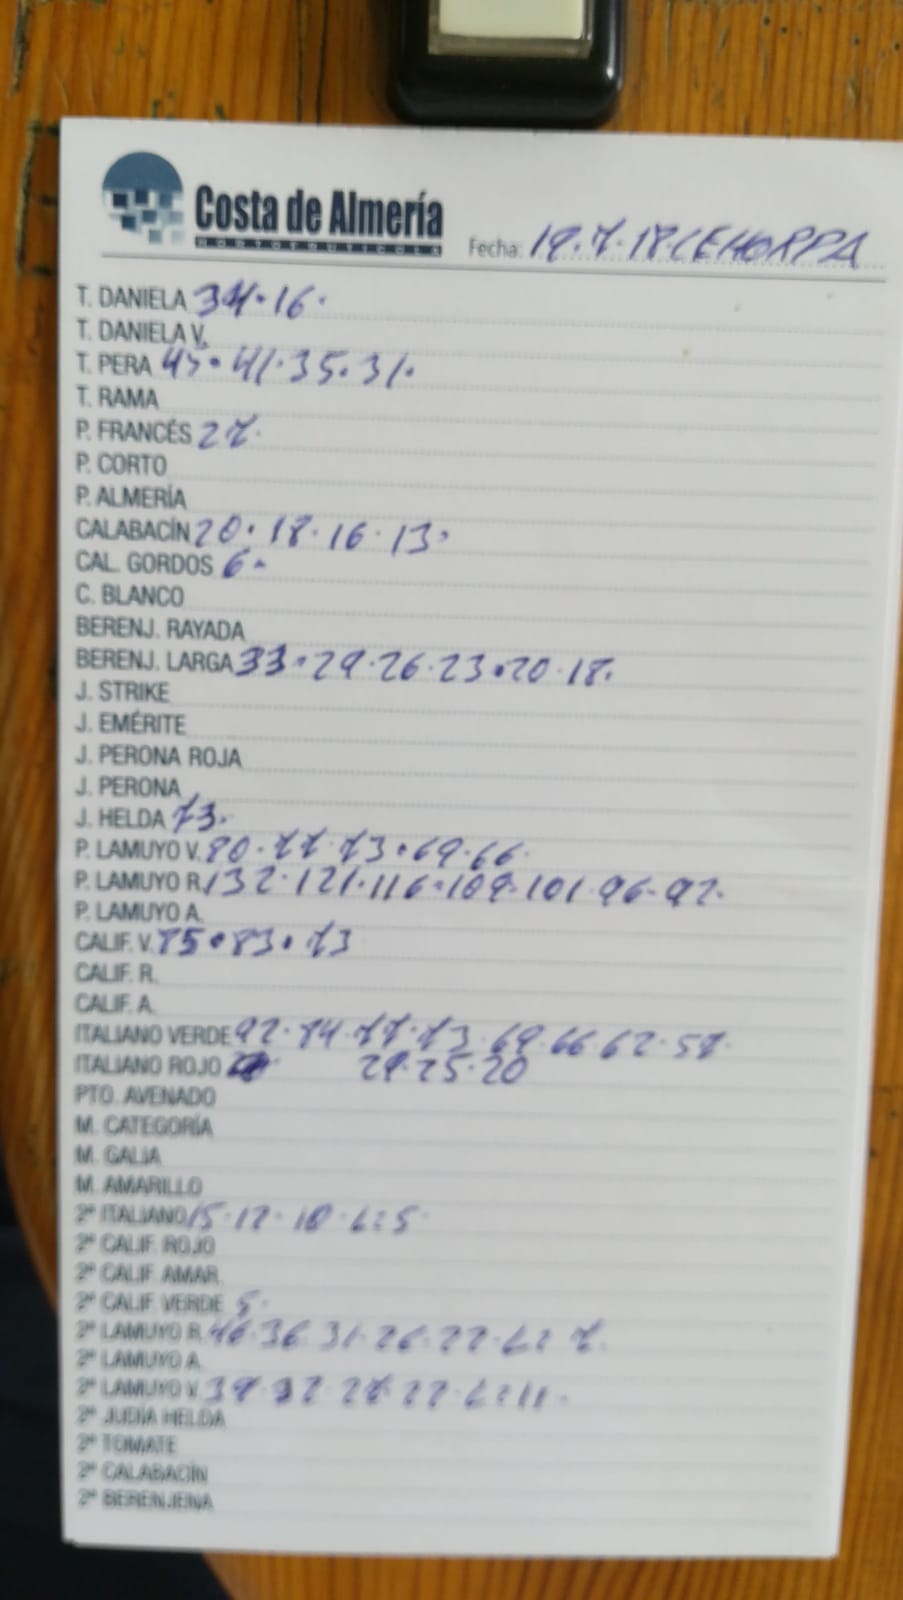 Costa de Almería
HORTOFRUTICOLA
Fecha: 19.7.18 CEHORPA
T. DANIELA 34.16.
T. DANIELA V.
T. PERA 45.41.35.31.
T. RAMA
P. FRANCÉS 27.
P. CORTO
P. ALMERÍA
CALABACÍN 20.18.16.13.
CAL. GORDOS 6.
C. BLANCO
BERENJ. RAYADA
BERENJ. LARGA 33.29.26.23.20.18.
J. STRIKE
J. EMÉRITE
J. PERONA ROJA
J. PERONA
J. HELDA 73.
P. LAMUYO V. 80.77.73.69.66.
P. LAMUYO R. 132.121.116.109.101.96.92.
P. LAMUYO A.
CALIF. V. 85.83.73
CALIF. R.
CALIF. A.
ITALIANO VERDE 92.84.77.73.69.66.62.57.
ITALIANO ROJO 29.25.20
PTO. AVENADO
M. CATEGORÍA
M. GALIA
M. AMARILLO
2ª ITALIANO 15.12.10.L:5.
2ª CALIF. ROJO
2ª CALIF. AMAR.
2ª CALIF. VERDE 5.
2ª LAMUYO R. 46.36.31.26.22.L:7.
2ª LAMUYO A.
2ª LAMUYO V. 39.32.27.22.L:11.
2ª JUDÍA HELDA
2ª TOMATE
2ª CALABACÍN
2ª BERENJENA